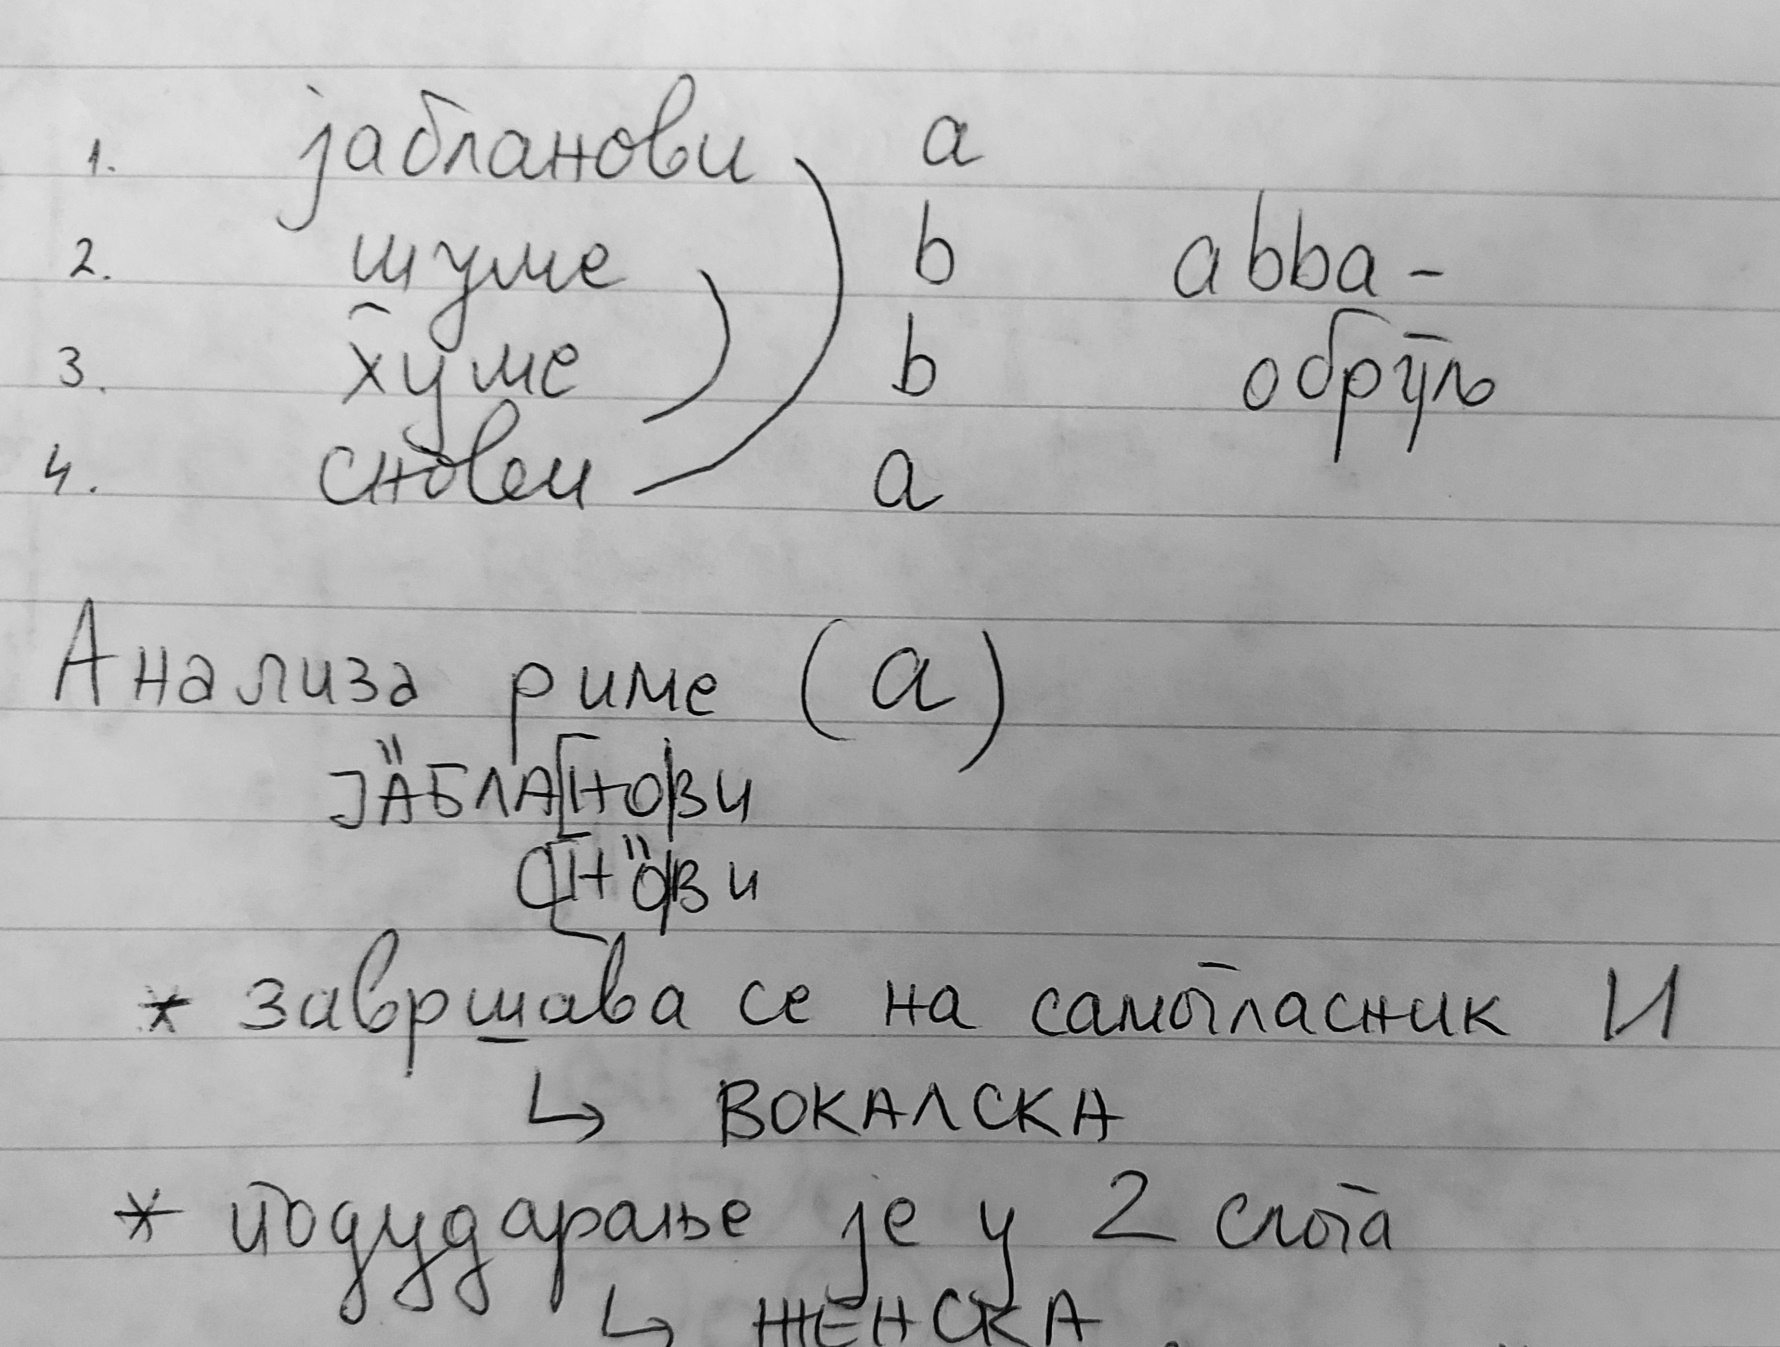 1. јабланови a
2. шуме b abba -
3. хуме b обруљ
4. снови a
Анализа риме (а)
ЈАБЛАНОВИ
СНОВИ
* завршава се на самогласник И
↳ ВОКАЛСКА
* подударање је у 2 слога
↳ ЖЕНСКА